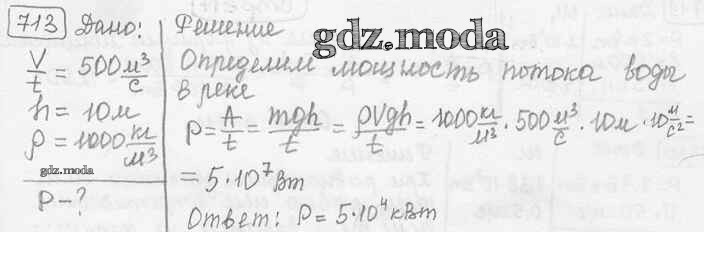 713 Дано:
V/t = 500 м³/с
h = 10м
ρ = 1000 кг/м³
gdz.moda
P - ?
Решение
gdz.moda
Определим мощность потока воды
в реке
P = A/t = mgh/t = ρVgh/t = 1000 кг/м³ · 500 м³/с · 10м · 10 м/с² =
= 5·10⁷ Вт
Ответ: P = 5·10⁴ кВт